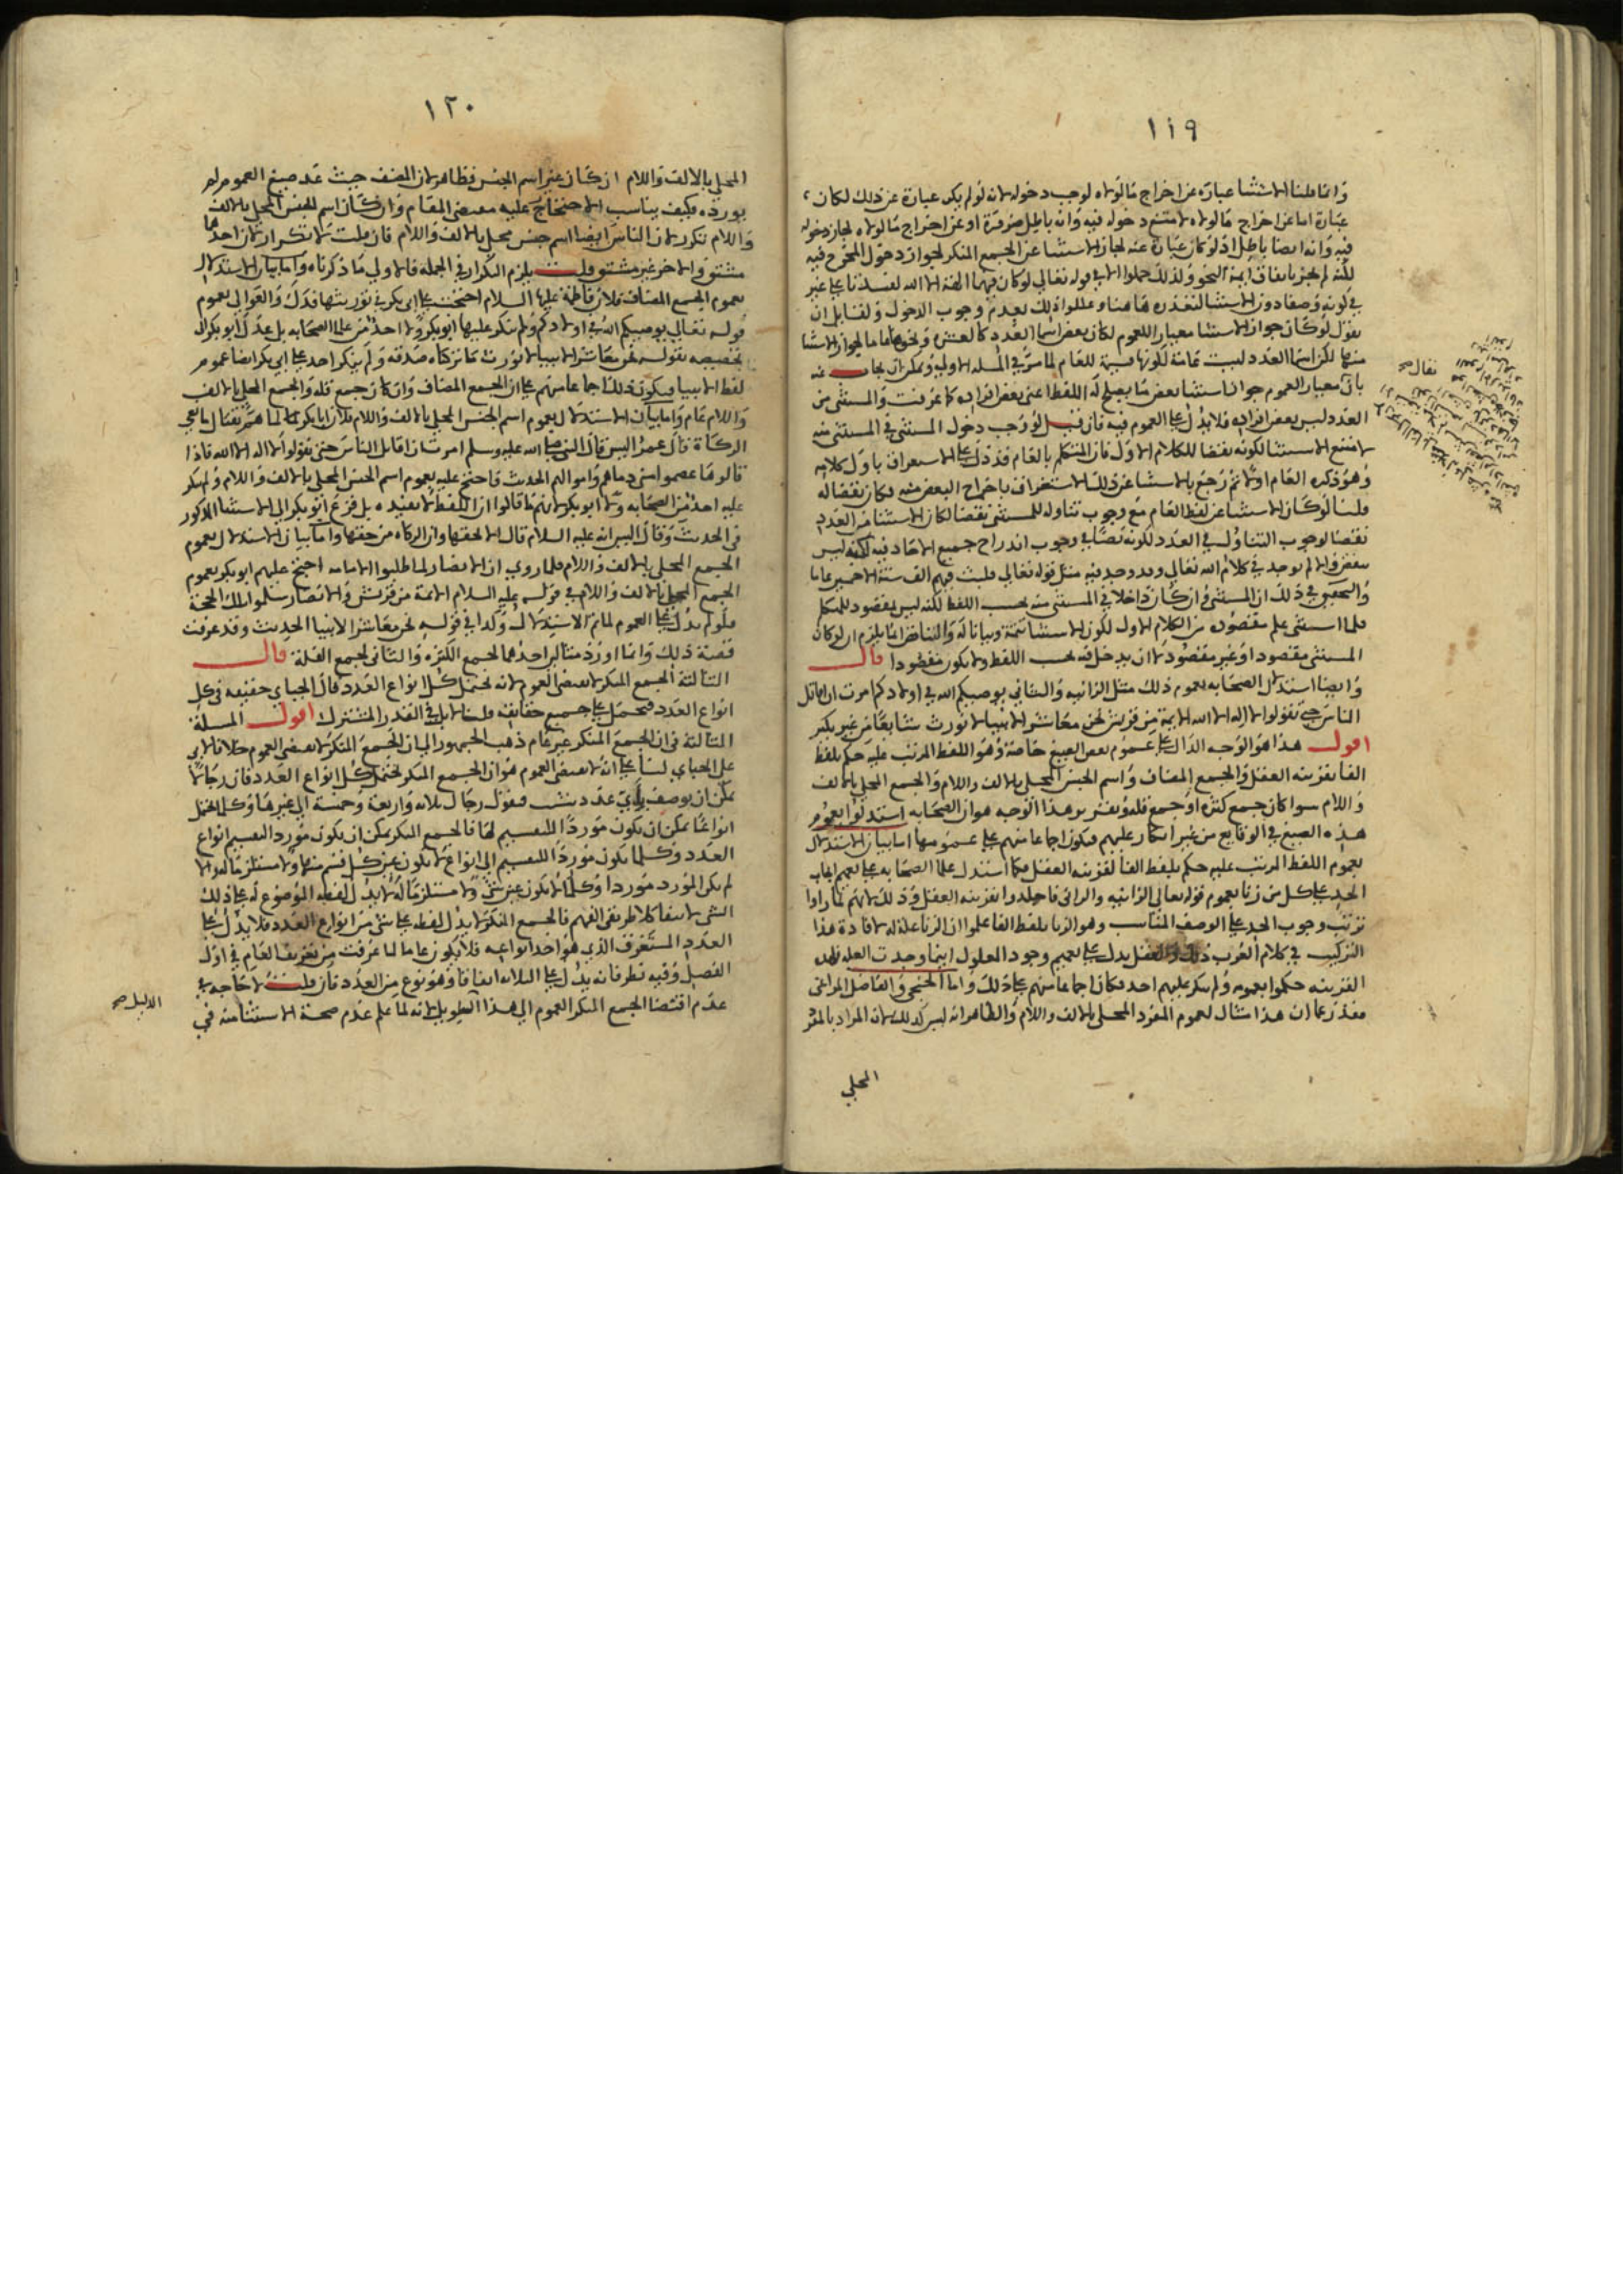 ١١٩
وانما قلنا الاستثنا عبارة عن اخراج ما لولاه لوجب دخوله لانه لو لم يكن عبارة عن ذلك لكان
عبارة اما عن اخراج ما لولاه لامتنع دخوله فيه وانه باطل ضرورة او عن اخراج ما لولاه لجاز دخوله
فيه وانه ايضا باطل اذ لو كان عبارة عنه لجاز الاستثنا عن الجمع المنكر لجواز دخول المخرج فيه
لكنه لم يجز باتفاق ايمة النحو ولذلك حملوا الا في قوله تعالى لو كان فيهما الهة الا الله لفسدتا على غير
في كونه وصفا دون الاستثنا لتعذره هاهنا وعللوا ذلك بعدم وجوب الدخول ولقايل ان
يقول لو كان جواز الاستثنا معيار العموم لكان بعض اسما العدد كالعشرة ونحوها عاما لجواز الاستثنا
منها لكن اسما العدد ليست عامة لكونها قسيمة للعام لما مر في المسلة الاولى ويمكن ان يجاب عنه
بان معيار العموم جواز استثنا بعض ما يصلح له اللفظ اعنى بعض افراده كما عرفت والمستثنى من
العدد ليس بعض افراده فلا يدل على العموم فيه فان قيل لو وجب دخول المستثنى في المستثنى منه
لامتنع الاستثنا لكونه نقضا للكلام الاول فان المتكلم بالعام قد دل على الاستغراق باول كلامه
وهو ذكره العام اولا ثم رجع بالاستثنا عن ذلك الاستغراق باخراج البعض منه فكان نقضا له
قلنا لو كان الاستثنا عن لفظ العام مع وجوب تناوله للمستثنى نقضا لكان الاستثنا من العدد
نقضا لوجوب التناول في العدد لكونه نصا في وجوب اندراج جميع الاحاد فيه لكنه ليس
بنقض والا لم يوجد في كلام الله تعالى وقد وجد فيه مثل قوله تعالى فلبث فيهم الف سنة الا خمسين عاما
والتحقيق في ذلك ان المستثنى وان كان داخلا في المستثنى منه بحسب اللفظ لكنه ليس بمقصود للمتكلم
فلما استثنى علم مقصوده من الكلام الاول لكون الاستثنا تتمة وبيانا له والتناقض انما يلزم ان لو كان
المستثنى مقصودا او غير مقصود لان يدخل فيه بحسب اللفظ ولا يكون مقصودا قال
وايضا استدلال الصحابه بعموم ذلك مثل الزانيه والزاني يوصيكم الله في اولادكم امرت ان اقاتل
الناس حتى يقولوا لا اله الا الله الايمة من قريش نحن معاشر الانبيا لا نورث شايعا من غير نكير
اقول هذا هو الوجه الدال على عموم بعض الصيغ خاصة وهو اللفظ المرتب عليه حكم بلفظ
الفا بقرينه العقل والجمع المضاف واسم الجنس المحلى بالالف واللام والجمع المحلى بالالف
واللام سوا كان جمع كثره او جمع قله وتقرير هذا الوجه هو ان الصحابه استدلوا بعموم
هذه الصيغ في الوقايع من غير انكار عليهم فيكون اجماعا منهم على عمومها اما بيان الاستدلال
بعموم اللفظ المرتب عليه حكم بلفظ الفا لقرينه العقل فكما استدل علما الصحابه على تعميم ايجاب
الحد على كل من زنا بعموم قوله تعالى الزانيه والزاني فاجلدوا بقرينه العقل وذلك لانهم لما راوا
ترتيب وجوب الحد على الوصف المناسب وهو الزنا بلفظ الفا علموا ان الزنا علة له لافادة هذا
التركيب في كلام العرب ذلك والعقل يدل على تعميم وجود المعلول اينما وجدت العله فلهذه
القرينه حكموا بعمومه ولم ينكر عليهم احد فكان اجماعا منهم على ذلك واما الخنجي والفاضل المراغى
فقد زعما ان هذا مثال لعموم المفرد المحلى بالالف واللام والظاهر انه ليس كذلك لان المراد بالمفرد
المحلى
يقال
١٢٠
المحلى بالالف واللام ان كان غير اسم الجنس فظاهر لان المصنف حيث عد صيغ العموم لم
يورده فكيف يناسب الاحتجاج عليه بمقتضى المقام وان كان اسم الجنس المحلى بالالف
واللام تكرر لان الناس ايضا اسم جنس محلى بالالف واللام فان قلت لا تكرار لان احدهما
مشتق والاخر غير مشتق قلت يلزم التكرار في الجمله فالاولى ما ذكرناه واما بيان الاستدلال
بعموم الجمع المضاف فلان فاطمة عليها السلام احتجت على ابى بكر في توريثها فدك والعوالى بعموم
قوله تعالى يوصيكم الله في اولادكم ولم ينكر عليها ابو بكر ولا احد من علما الصحابه بل عدل ابو بكر الى
تخصيصه بقوله نحن معاشر الانبيا لا نورث ما تركناه صدقه ولم ينكر احد على ابى بكر ايضا عموم
لفظ الانبيا فيكون ذلك اجماعا منهم على ان الجمع المضاف وان كان جمع قله والجمع المحلى بالالف
واللام عام واما بيان الاستدلال بعموم اسم الجنس المحلى بالالف واللام فلان ابا بكر لما هم بقتال مانعى
الزكاة قال عمر اليس قال النبي صلى الله عليه وسلم امرت ان اقاتل الناس حتى يقولوا لا اله الا الله فاذا
قالوها عصموا منى دماهم واموالهم الحديث فاحتج عليه بعموم اسم الجنس المحلى بالالف واللام ولم ينكر
عليه احد من الصحابه ولا ابو بكر لانهم ما قالوا ان اللفظ لا يفيده بل فزع ابو بكر الى الاستثنا المذكور
في الحديث وقال اليس انه عليه السلام قال الا بحقها وان الزكاه من حقها واما بيان الاستدلال بعموم
الجمع المحلى بالالف واللام فلما روى ان الانصار لما طلبوا الامامه احتج عليهم ابو بكر بعموم
الجمع المحلى بالالف واللام في قوله عليه السلام الائمة من قريش والانصار سلموا تلك الحجة
فلو لم يدل على العموم لما تم الاستدلال وكذا في قوله نحن معاشر الانبيا الحديث وقد عرفت
قصة ذلك وانما اورد مثالين احدهما لجمع الكثره والثانى لجمع القلة قال
الثالثة الجمع المنكر لا يقتضى العموم لانه يحتمل كل انواع العدد قال الجباى حقيقه في كل
انواع العدد فيحمل على جميع حقايقه قلنا لا بل في القدر المشترك اقول المسلة
الثالثة في ان الجمع المنكر غير عام ذهب الجمهور الى ان الجمع المنكر لا يقتضى العموم خلافا لابي
على الجباى لنا على انه لا يقتضى العموم هو ان الجمع المنكر يحتمل كل انواع العدد فان رجالا
يمكن ان يوصف باى عدد شئت فيقول رجال ثلاثه واربعة وخمسة الى غيرها وكل ما يحتمل
انواعا يمكن ان يكون موردا للتقسيم لها فالجمع المنكر يمكن ان يكون مورد التقسيم لانواع
العدد وكلما يكون موردا للتقسيم الى انواع لا يكون عين كل قسم منها ولا مستلزما لها والا
لم يكن المورد موردا وكلما لا يكون عين شئ ولا مستلزما له لا يدل لفظه الموضوع له على ذلك
الشى لانتفا كلا طريقى الفهم فالجمع المنكر لا يدل لفظه على شئ من انواع العدد فلا يدل على
العدد المستغرق الذي هو احد انواعه فلا يكون عاما لما عرفت من تعريف العام في اول
الفصل وفيه نظر فانه يدل على الثلاثه اتفاقا وهو نوع من العدد فان قلت لا حاجه في
عدم اقتضا الجمع المنكر العموم الى هذا التطويل لانه لما علم عدم صحة الاستثنا منه في
الدليل صح